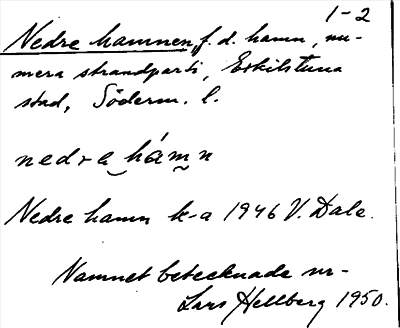 1-2
Nedre hamnen, f.d. hamn, nu-
mera strandparti, Eskilstuna
stad, Söderm. l.
nedra hámn
Nedre hamn k-a 1946 V. Dale.
Namnet betecknade nr-
Lars Hellberg 1950.